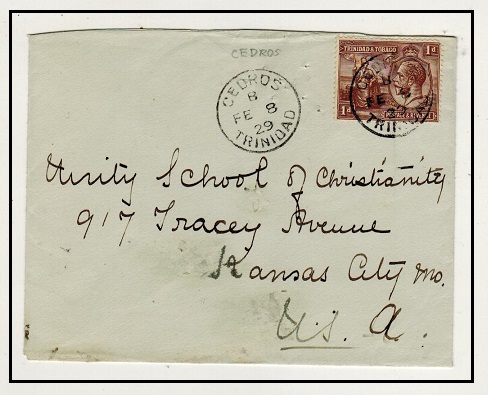 CEDROS
CEDROS
B
FE 8
29
TRINIDAD
TRINIDAD & TOBAGO
1d
1d
POSTAGE & REVENUE
CEDROS
B
FE
TRINIDAD
Unity School of Christianity
917 Tracey Avenue
Kansas City Mo.
U.S.A.